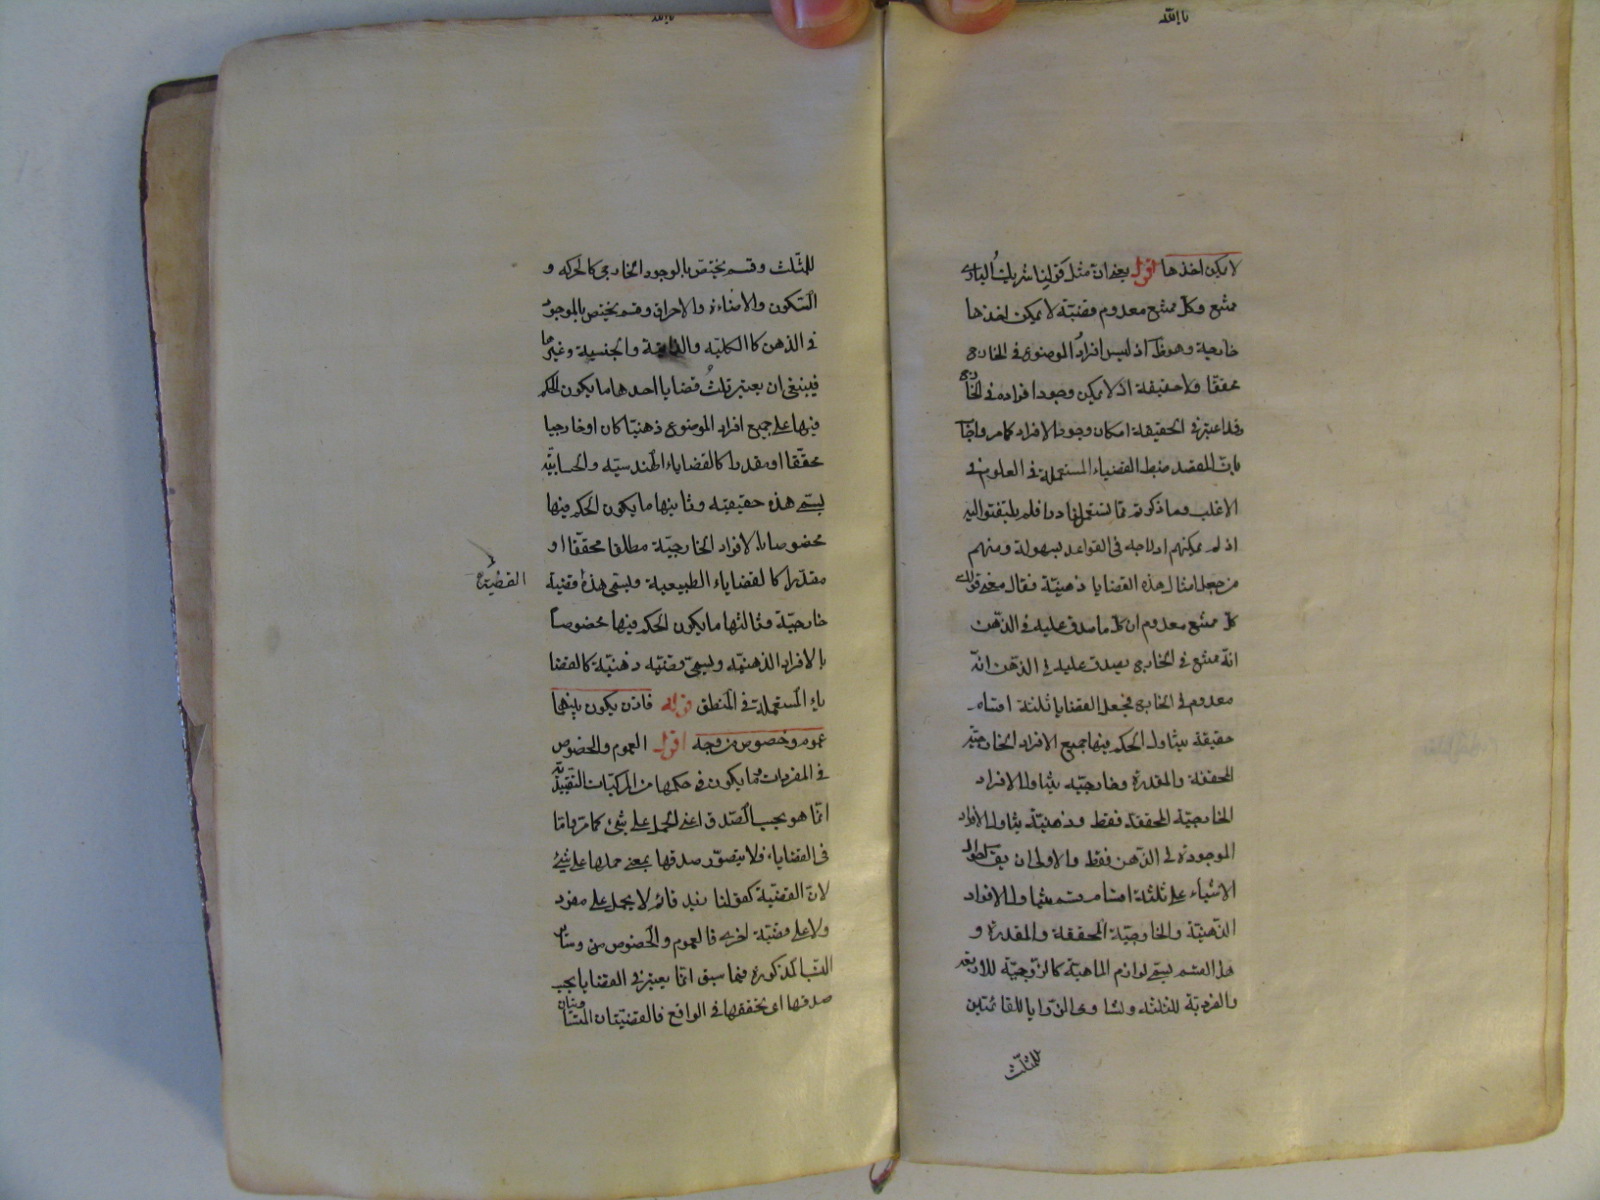 لا يمكن اخذها اقول يعنى ان مثل قولنا شريك البارى
ممتنع وكل ممتنع معدوم قضيّة لا يمكن اخذها
خارجية وهو ظ اذ ليس افرادُ الموضوع فى الخارج
محققا ولا حقيقية اذ لا يمكن وجود افراده فى الخارج
وقد اعتبر فى الحقيقية امكان وجود الافراد كما مر واجا
بانّ المقصد ضبط القضياء المستعملة فى العلوم فى
الاغلب وما ذكرتم مما تستعمل نادرا فلم يلتفتوا اليه
اذ لم يمكنهم ادراجه فى القواعد بسهولة ومنهم
من جعل امثال هذه القضايا ذهنيّة فقال معنى قولك
كل ممتنع معدوم ان كل ما صدق عليه فى الذّهن
انّه ممتنع فى الخارج يصدق عليه فى الذّهن انّه
معدوم فى الخارج فجعل القضايا ثلثة اقسام
حقيقة يتناول الحكم فيها جميع الافراد الخارجيّة
المحققة والمقدرة وخارجيّة يتناول الافراد
الخارجيّة المحققة فقط وذهنيّة يتناول الافراد
الموجودة فى الذّهن فقط والاولى ان يقا احوال
الاشياء على ثلثة اقسام قسم يتناول الافراد
الذّهنيّة والخارجيّة المحققة والمقدرة و
هذا القسم يسمّى لوازم الماهيّة كالزّوجيّة للاربعة
والفرديّة للثلثة وتساوى الزّوايا للقائمتين
للمثلّث
للمثلّث وقسم يختصّ بالوجود الخارجى كالحركة و
السّكون والاضاءة والاحراق وقسم يختص بالموجود
فى الذهن كالكليّة والذاتية والجنسية وغيرها
فينبغى ان يعتبر ثلثُ قضايا احدها ما يكون الحكم
فيها على جميع افراد الموضوع ذهنيّا كان او خارجيا
محقّقا او مقدرا كالقضاياء الهندسيّة والحسابيّة
يسمّى هذه حقيقيّة وثانيها ما يكون الحكم فيها
مخصوصا بالافراد الخارجيّة مطلقا محقّقا او
مقدّرا كالقضاياء الطبيعية ويسمى هذه قضية
القضيّة
خارجيّة وثالثها ما يكون الحكم فيها مخصوصاً
بالافراد الذهنيّة ويسمّى قضيّة ذهنيّة كالقضا
ياء المستعملة فى المنطق قوله فاذن يكون بينهما
عموم وخصوص من وجه اقول العموم والخصوص
فى المفردات وما يكون فى حكمها من المركبات التّقييديّة
انّما هو بحسب الصّدق اعنى الحمل على شئ كما مرّ وامّا
فى القضاياء فلا يتصوّر صدقها بمعنى حملها على شئ
لانّ القضيّة كقولنا زيد قائم لا يحمل على مفرد
ولا على قضيّة اخرى فالعموم والخصوص من وسائر
النّسب المذكورة فيما سبق انّما يعتبر فى القضايا بحسب
صدقها اى تحققها فى الواقع فالقضيّتان المتساويتان